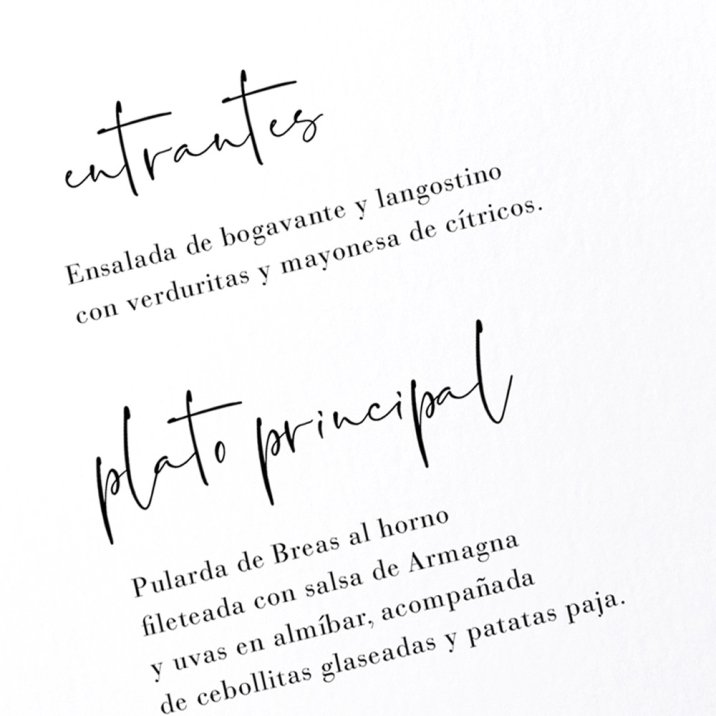 entrantes
Ensalada de bogavante y langostino
con verduritas y mayonesa de cítricos.
plato principal
Pularda de Breas al horno
fileteada con salsa de Armagna
y uvas en almíbar, acompañada
de cebollitas glaseadas y patatas paja.